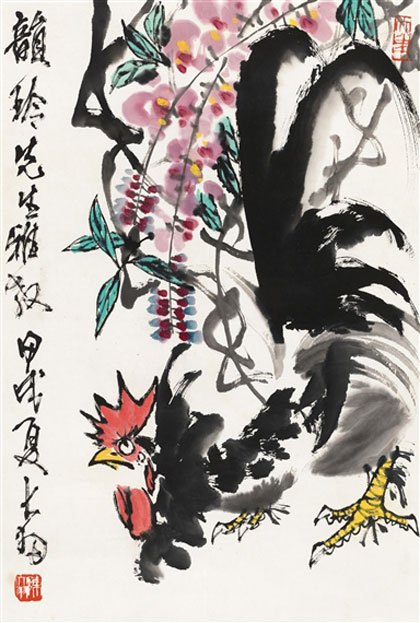 韻玲先生雅教
甲戌夏大羽